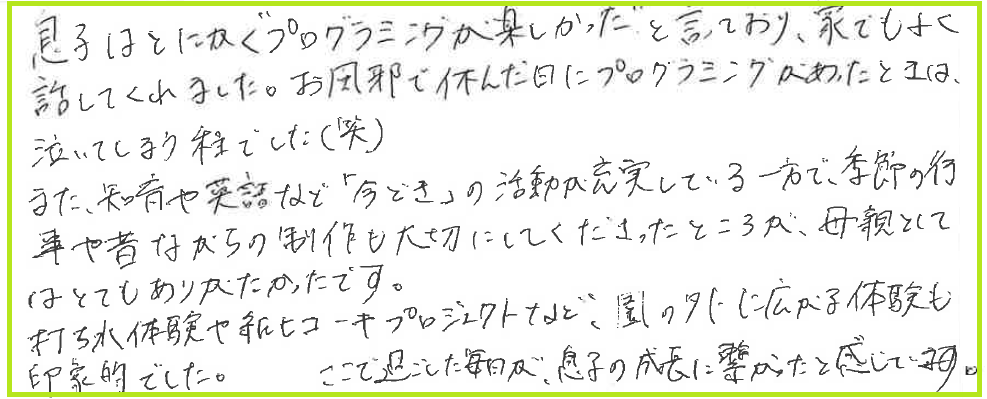 息子はとにかく"プログラミングが楽しかった"と言っており、家でもよく
話してくれました。お風邪で休んだ日にプログラミングがあったときは、
泣いてしまう程でした(笑)
また、知育や英語など「今どき」の活動が充実している一方で、季節の行
事や昔ながらの制作も大切にしてくださったところが、母親として
はとてもありがたかったです。
打ち水体験や紙ヒコーキプロジェクトなど、園の外に広がる体験も
印象的でした。 ここで過ごした毎日が、息子の成長に繋がったと感じています。